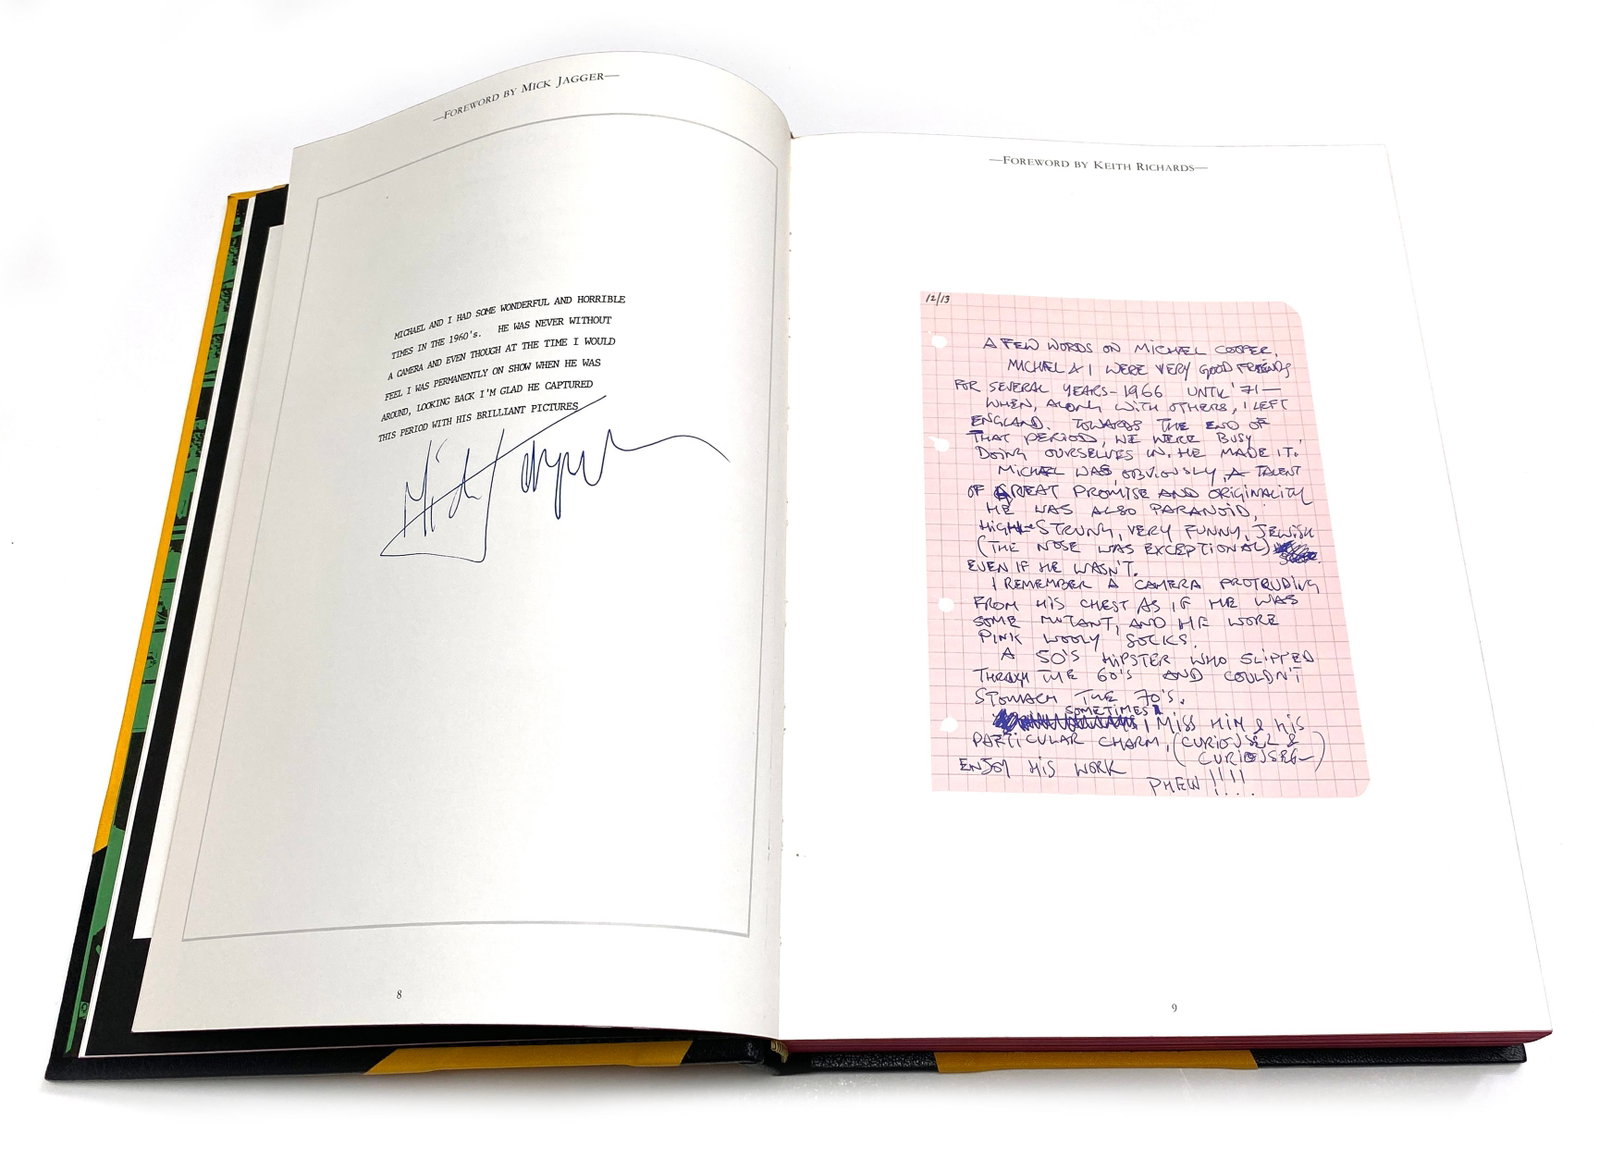 —FOREWORD BY MICK JAGGER—
MICHAEL AND I HAD SOME WONDERFUL AND HORRIBLE
TIMES IN THE 1960's. HE WAS NEVER WITHOUT
A CAMERA AND EVEN THOUGH AT THE TIME I WOULD
FEEL I WAS PERMANENTLY ON SHOW WHEN HE WAS
AROUND, LOOKING BACK I'M GLAD HE CAPTURED
THIS PERIOD WITH HIS BRILLIANT PICTURES
Mick Jagger
8
—FOREWORD BY KEITH RICHARDS—
12/13
A FEW WORDS ON MICHAEL COOPER,
MICHAEL & I WERE VERY GOOD FRIENDS
FOR SEVERAL YEARS – 1966 UNTIL '71 —
WHEN, ALONG WITH OTHERS, I LEFT
ENGLAND. TOWARDS THE END OF
THAT PERIOD, WE WERE BUSY
DOING OURSELVES IN. HE MADE IT.
MICHAEL WAS, OBVIOUSLY, A TALENT
OF GREAT PROMISE AND ORIGINALITY
HE WAS ALSO PARANOID,
HIGH-STRUNG, VERY FUNNY, JEWISH
(THE NOSE WAS EXCEPTIONAL)
EVEN IF HE WASN'T.
I REMEMBER A CAMERA PROTRUDING
FROM HIS CHEST AS IF HE WAS
SOME MUTANT, AND HE WORE
PINK WOOLY SOCKS.
A 50'S HIPSTER WHO SLIPPED
THROUGH THE 60'S AND COULDN'T
STOMACH THE 70'S.
SOMETIMES
I MISS HIM & HIS
PARTICULAR CHARM, (CURIOUSER &
CURIOUSER—)
ENJOY HIS WORK
PHEW!!!!
9